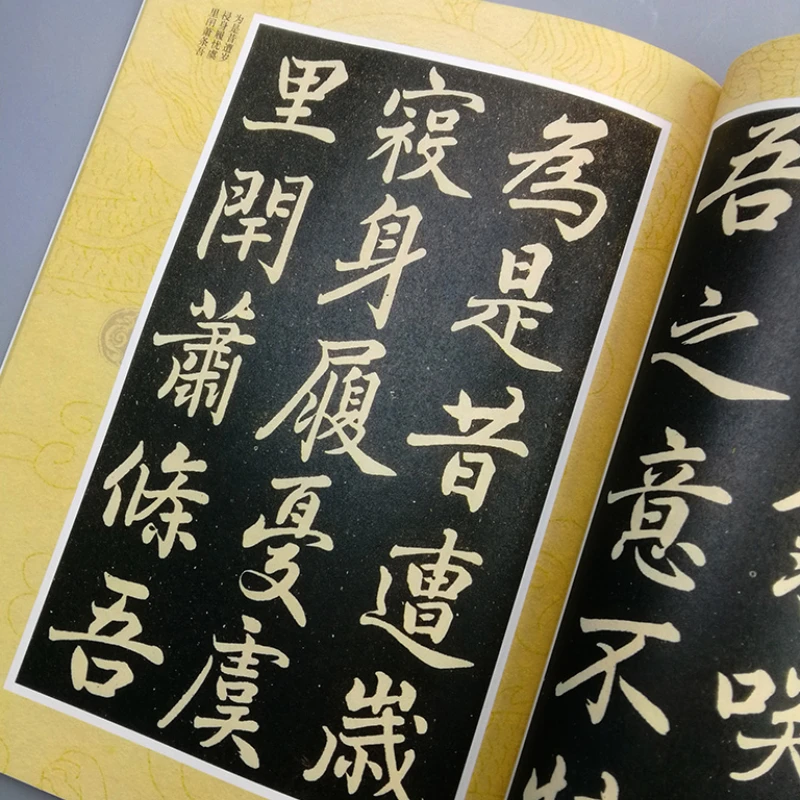 吾之意不
為是昔遭歲
祲身履憂虞
里閈蕭條吾
为是昔遭岁
祲身履忧虞
里闬萧条吾